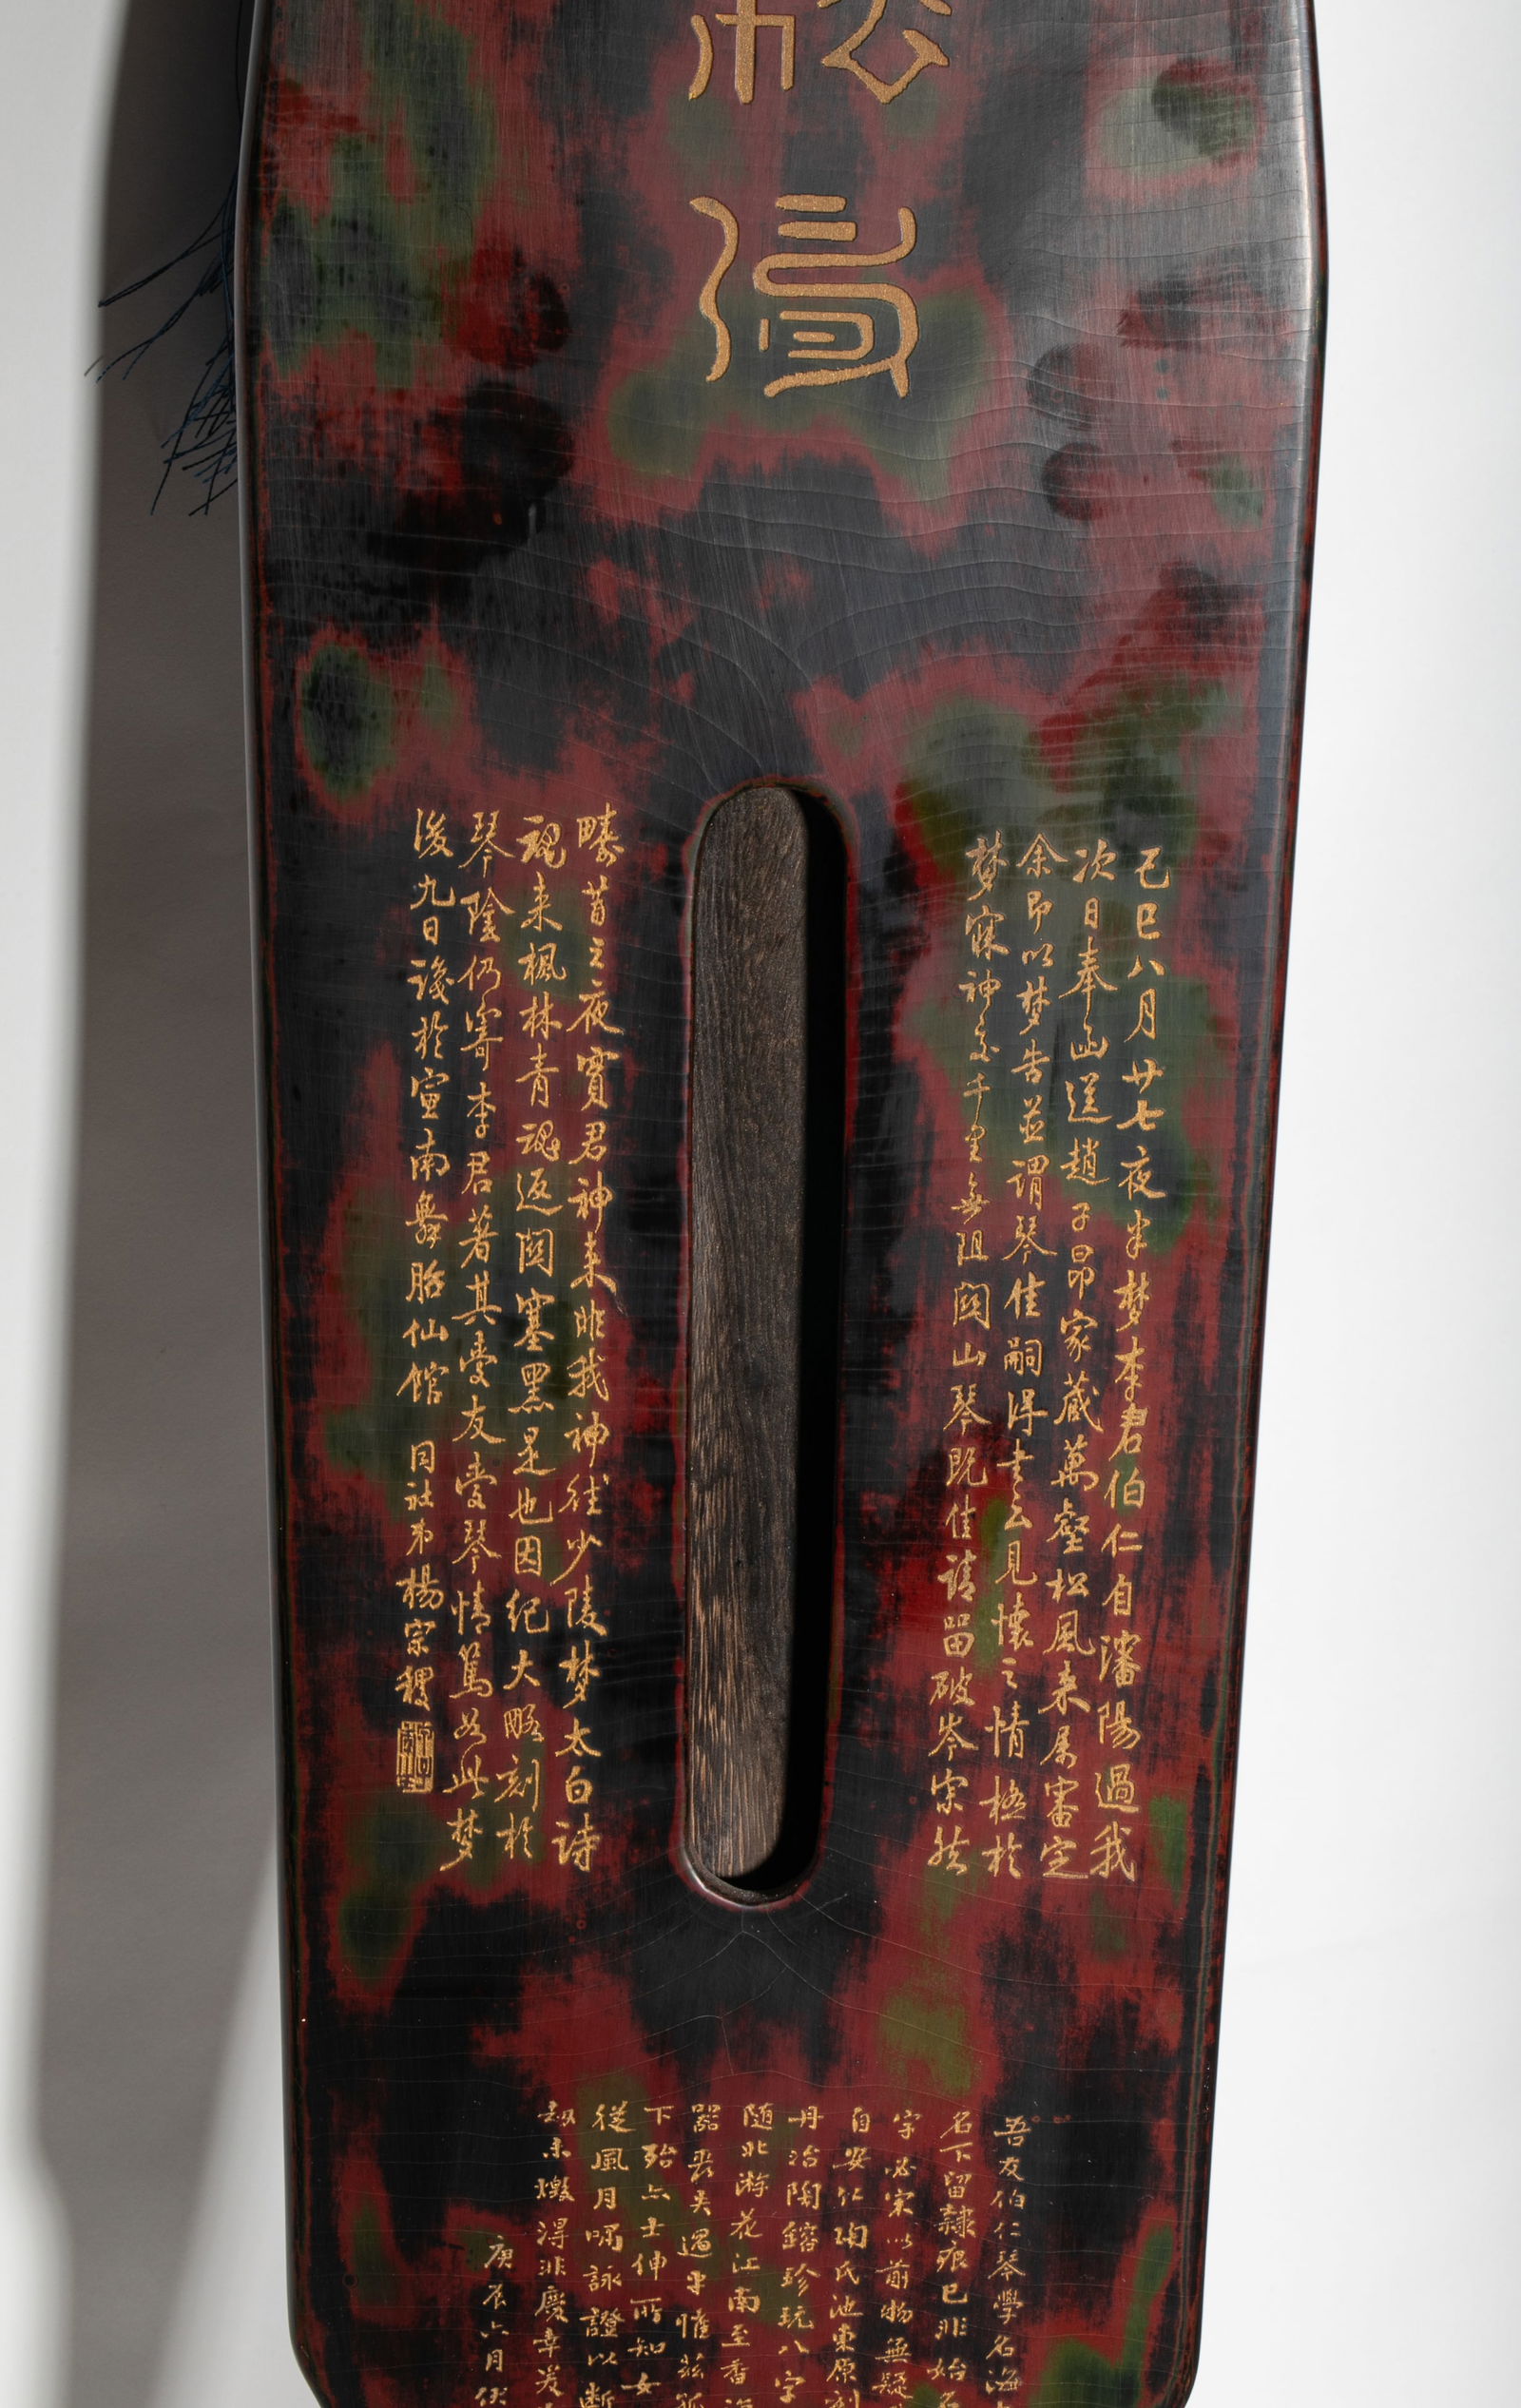 松
己巳八月廿七夜半梦李君伯仁自瀋陽過我
次日奉函送趙子昂家蔵萬壑松風来屬審定
余即以梦告並謂琴佳嗣得書云見懐之情極於
梦寐神交千里無阻関山琴既佳請留破岑宗然
畴昔之夜實君神来非我神往少陵梦太白詩
魂来楓林青魂返関塞黑是也因纪大略刻於
琴陰仍寄李君著其愛友愛琴情篤如此梦
後九日識於宣南舞胎仙館 同社弟楊宗稷
吾友伯仁琴學名海
名下留隸痕已非始名
字必宋以前物無疑
自安仁陶氏池東原刻
丹冶陶鎔珍玩八字
随北游花江南至香
器丧失過半惟兹
下殆亦士伸所知女
從風月嘱詠證以断
劫未燬得非慶幸爰
庚辰六月伏